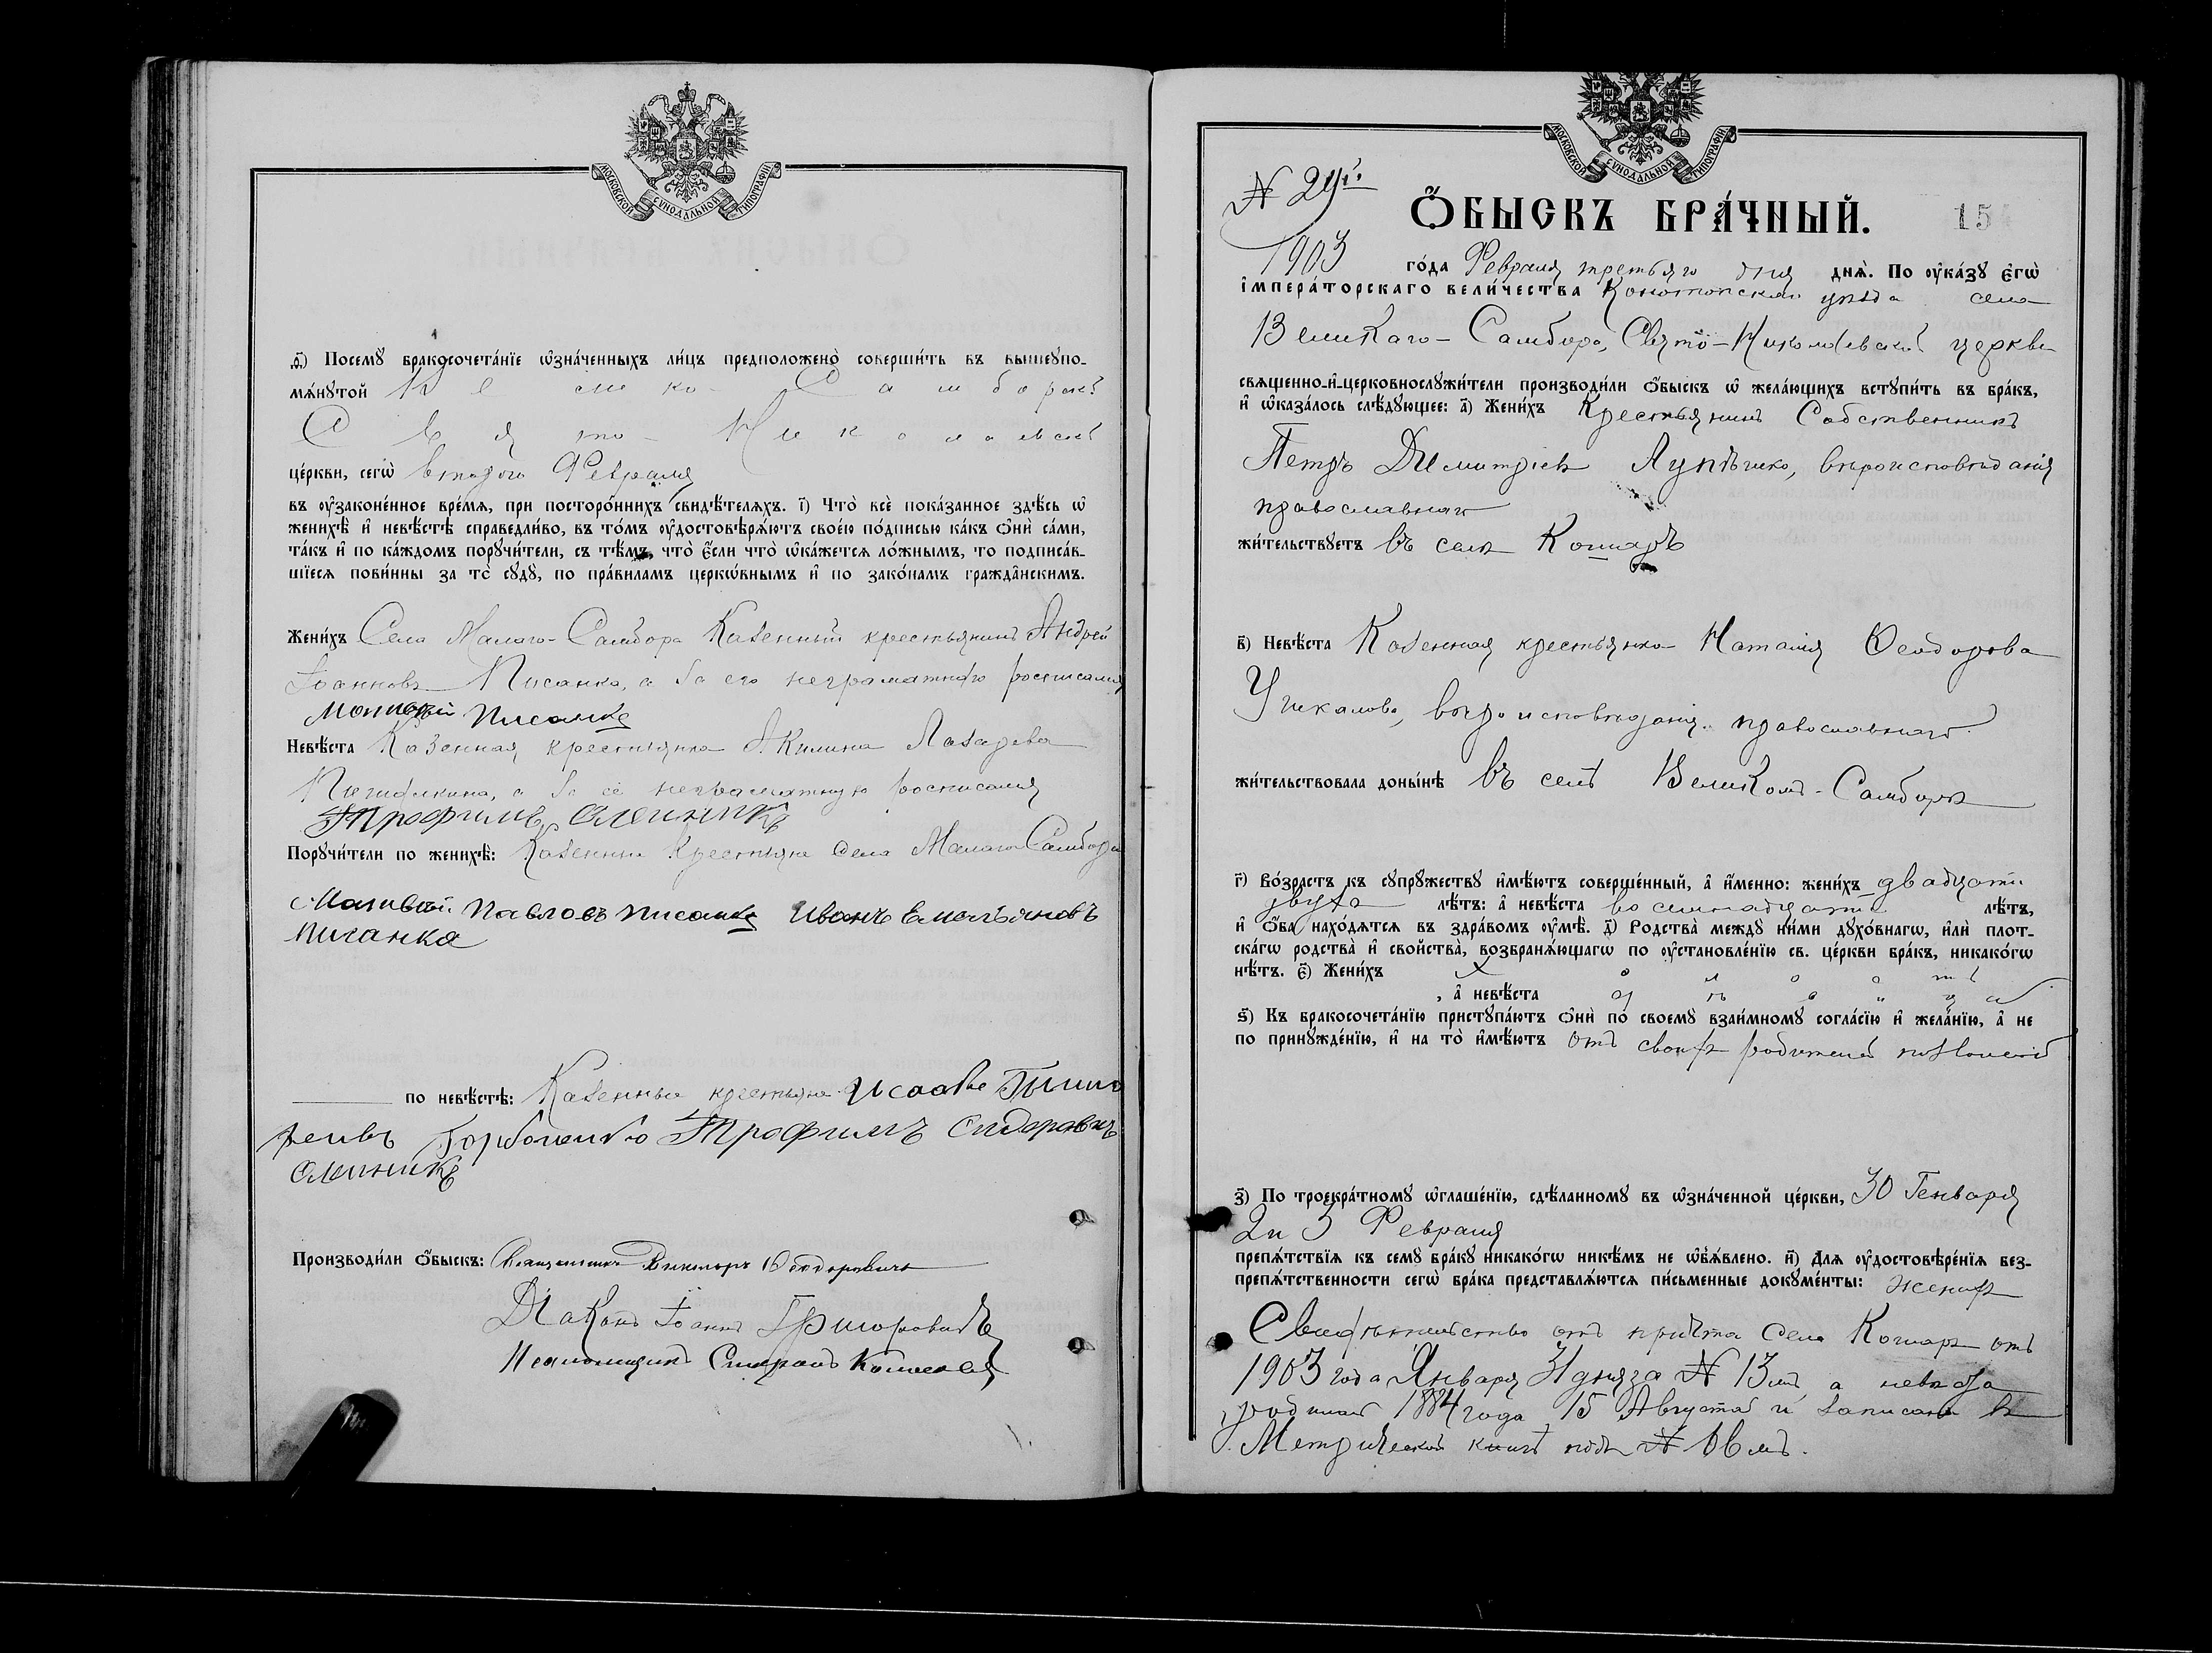 МОСКОВСКОЙ СѴНОДАЛЬНОЙ ТИПОГРАФІИ
ѳ҃) Посемꙋ̀ бракосочета́нїе ѡ҆зна́ченныхъ ли́цъ предположено̀ соверши́ть въ вышеꙋпо-
мѧ́нꙋтой Велико-Самборской
Свято-Николаевской
це́ркви, сегѡ̀ второго Февраля
въ ᲂу҆зако́ненное вре́мѧ, при посторо́ннихъ свидѣ́телѧхъ. і҃) Что̀ всѐ пока́занное здѣ́сь ѡ҆
женихѣ̀ и҆ невѣ́стѣ справедли́во, въ то́мъ ᲂу҆достовѣрѧ́ютъ свое́ю по́дписью ка́къ ѻ҆нѝ са́ми,
та́къ и҆ по ка́ждомъ порꙋчи́тели, съ тѣ́мъ, что̀ є҆́сли что̀ ѡ҆ка́жетсѧ ло́жнымъ, то подписа́в-
шїесѧ пови́нны за то̀ сꙋдꙋ̀, по пра́виламъ церко́внымъ и҆ по зако́намъ гражда́нскимъ.
Жени́хъ Села Малаго-Самбора Казенный крестьянинъ Андрей
Іоанновъ Писанка, а за его неграматнаго росписался
Матвей Писанка
Невѣ́ста Казенная крестьянка Акилина Лазарева
а за её неграматную росписался
Трофимъ Олейникъ
Порꙋчи́тели по женихѣ̀: Казенные Крестьяне Села Малаго-Самбора
Матвей Павловъ писанка Иванъ Емельяновъ
писанка
по невѣ́стѣ: Казенные крестьяне Исаакъ
Горбаченко Трофимъ Сидоровичъ
Олейникъ
Производи́ли ѻ҆́быскъ: Священникъ Викторъ Ѳеодоровичъ
Діаконъ Іоаннъ Григоровичъ
Псаломщикъ Стефанъ
МОСКОВСКОЙ СѴНОДАЛЬНОЙ ТИПОГРАФІИ
№ 29й
Ѻ҆́БЫСКЪ БРА́ЧНЫЙ. 15
1903 го́да Февраля третьяго дня днѧ̀. По ᲂу҆ка́зꙋ є҆гѡ̀
і҆мпера́торскаго вели́чества Конотопскаго уезда села
Великаго-Самбора, Свято-Николаевской церкви
свѧщенно-и҆-церковнослꙋжи́тели производи́ли ѻ҆́быскъ ѡ҆ жела́ющихъ встꙋпи́ть въ бра́къ,
и҆ ѡ҆каза́лось слѣ́дꙋющее: а҃) Жени́хъ Крестьянинъ Собственникъ
Петръ Димитріевъ вероисповеданія
православнаго
жи́тельствꙋетъ въ селе Кошарѣ
в҃) Невѣ́ста Казенная крестьянка Наталія Ѳеодорова
вероисповеданія православнаго.
жи́тельствовала доны́нѣ въ селѣ Великомъ-Самборѣ
г҃) Во́зрастъ къ сꙋпрꙋ́жествꙋ и҆мѣ́ютъ соверше́нный, а҆ и҆́менно: жени́хъ двадцати
двухъ лѣ́тъ: а҆ невѣ́ста восемнадцати лѣ́тъ,
и҆ ѻ҆́ба нахо́дѧтсѧ въ здра́вомъ ᲂу҆мѣ̀. д҃) Родства̀ междꙋ̀ ни́ми дꙋхо́внагѡ, и҆лѝ плот-
ска́гѡ родства̀ и҆ свойства̀, возбранѧ́ющагѡ по ᲂу҆становле́нїю св. це́ркви бра́къ, никако́гѡ
нѣ́тъ. є҃) Жени́хъ холостъ
, а҆ невѣ́ста дѣвица
ѕ҃) Къ бракосочета́нїю пристꙋпа́ютъ ѻ҆нѝ по своемꙋ̀ взаи́мномꙋ согла́сїю и҆ жела́нїю, а҆ не
по принꙋжде́нїю, и҆ на то̀ и҆мѣ́ютъ отъ своихъ родителей позволеніе
з҃) По троекра́тномꙋ ѡ҆глаше́нїю, сдѣ́ланномꙋ въ ѡ҆зна́ченной це́ркви, 30 Генваря
2 и 3 Февраля
препѧ́тствїѧ къ семꙋ̀ бра́кꙋ никако́гѡ никѣ́мъ не ѡ҆б̾ѧ́влено. и҃) Длѧ ᲂу҆достовѣре́нїѧ без-
препѧ́тственности сегѡ̀ бра́ка представлѧ́ютсѧ пи́сьменные докꙋме́нты: жениха
Свидѣтельство отъ причта Села Кошаръ отъ
1903 года Января 31 дня за № 13мъ, а невѣста
родилась 1884 года 15 Августа и записана въ
Метрической книгѣ подъ №